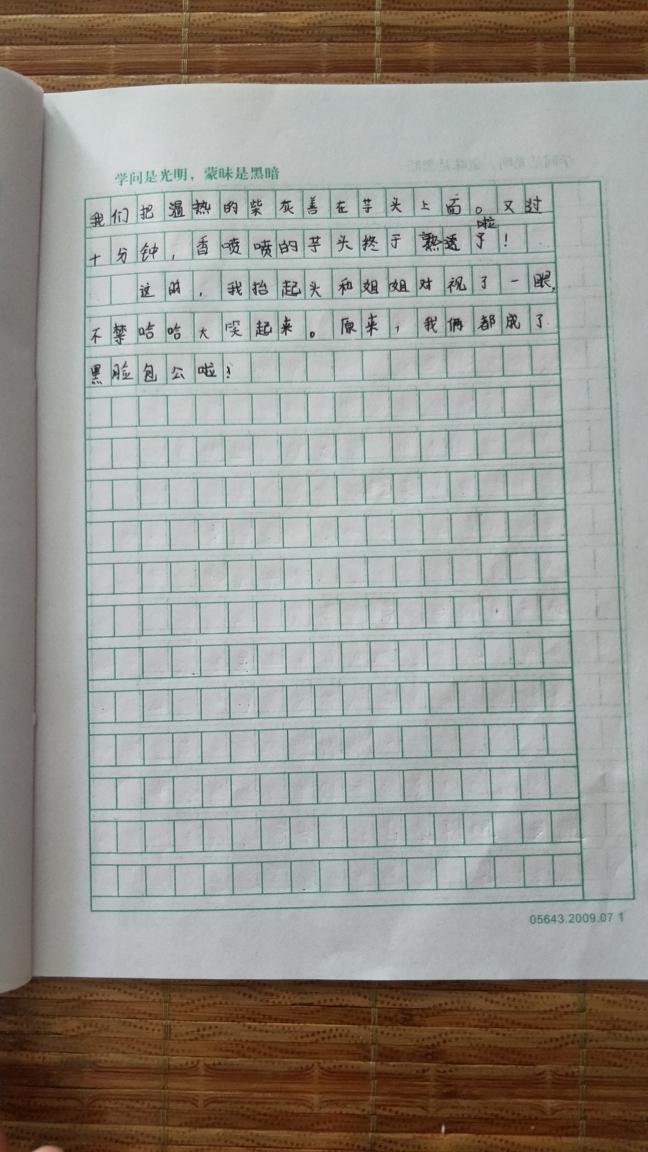 学问是光明，蒙昧是黑暗
我们把温热的柴灰善在芋头上面。又过
十分钟，香喷喷的芋头终于熟透了啦！
这时，我抬起头和姐姐对视了一眼，
不禁哈哈大笑起来。原来，我俩都成了
黑脸包公啦！
05643.2009.07 1